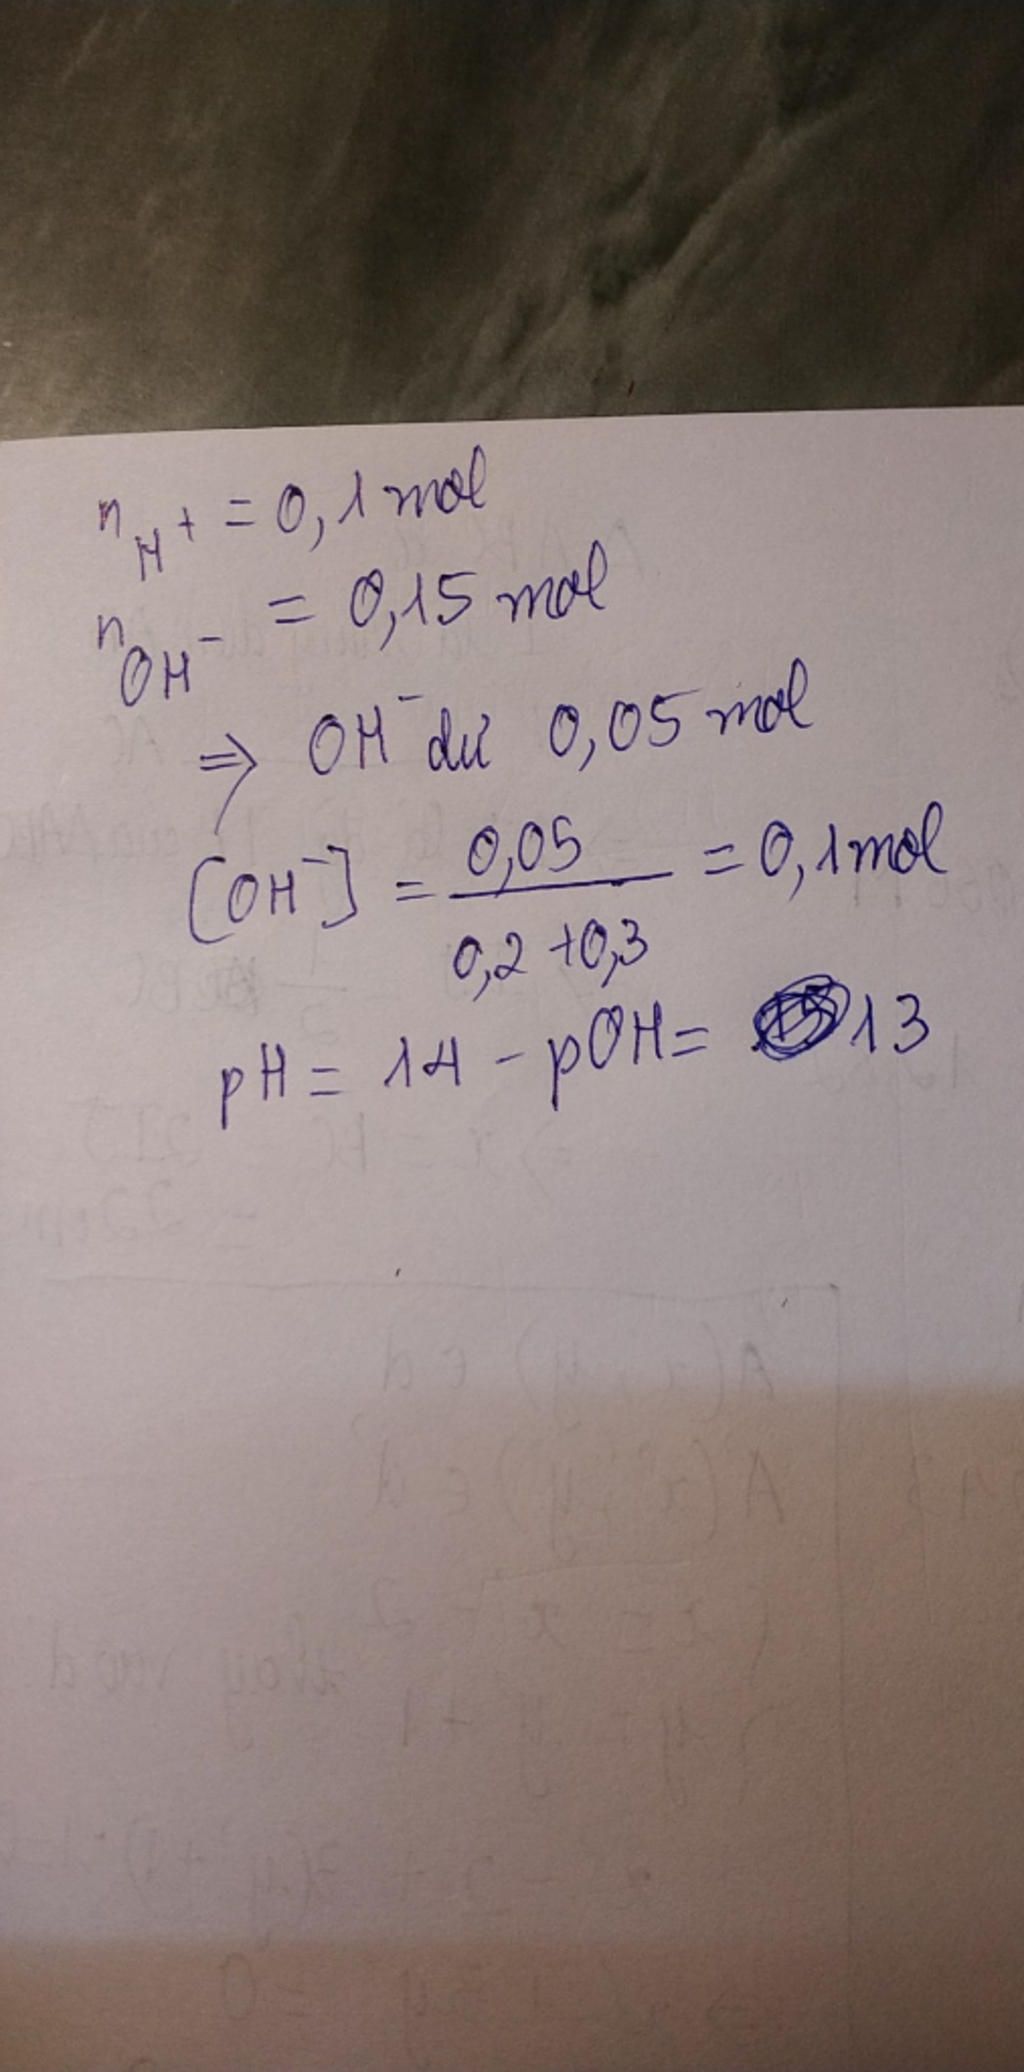 n_H+ = 0,1 mol
n_OH- = 0,15 mol
⇒ OH⁻ dư 0,05 mol
[OH⁻] = 0,05 / 0,2 + 0,3 = 0,1 mol
pH = 14 - pOH = 13